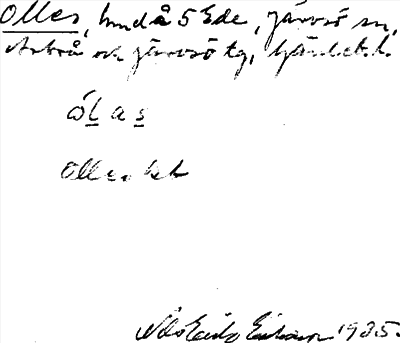 Olles, hmd å 5 Ede, Järvsö sn,
Arbrå och Järvsö tg, Gävleb. l.
ò̀l a s
Olles
Nils Erik Eriksson 1935.